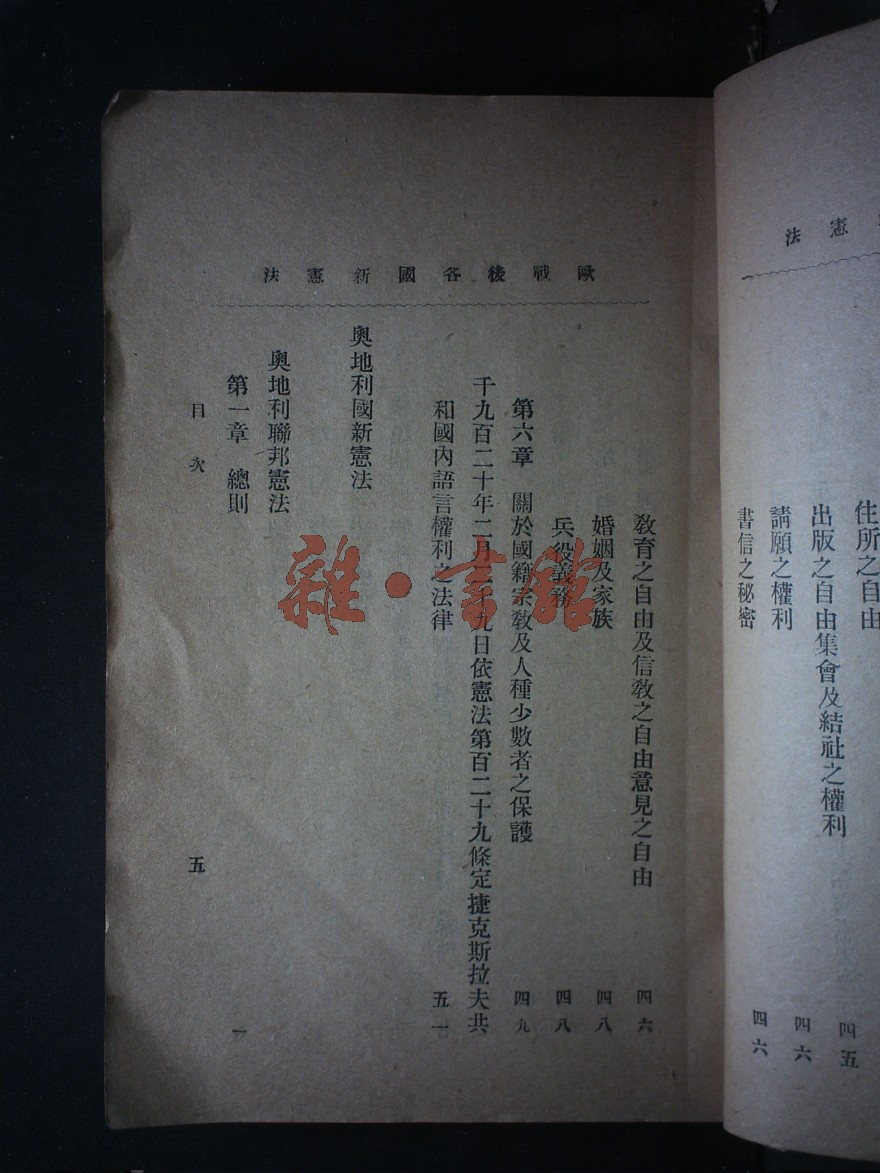 憲法
住所之自由 四五
出版之自由集會及結社之權利
請願之權利 四六
書信之秘密 四六
歐戰後各國新憲法
教育之自由及信教之自由意見之自由 四六
婚姻及家族 四八
兵役義務 四八
第六章 關於國籍宗教及人種少數者之保護 四九
千九百二十年二月二十九日依憲法第百二十九條定捷克斯拉夫共
和國內語言權利之法律 五一
奧地利國新憲法
奧地利聯邦憲法
第一章 總則 一
目次
五
雜·書館